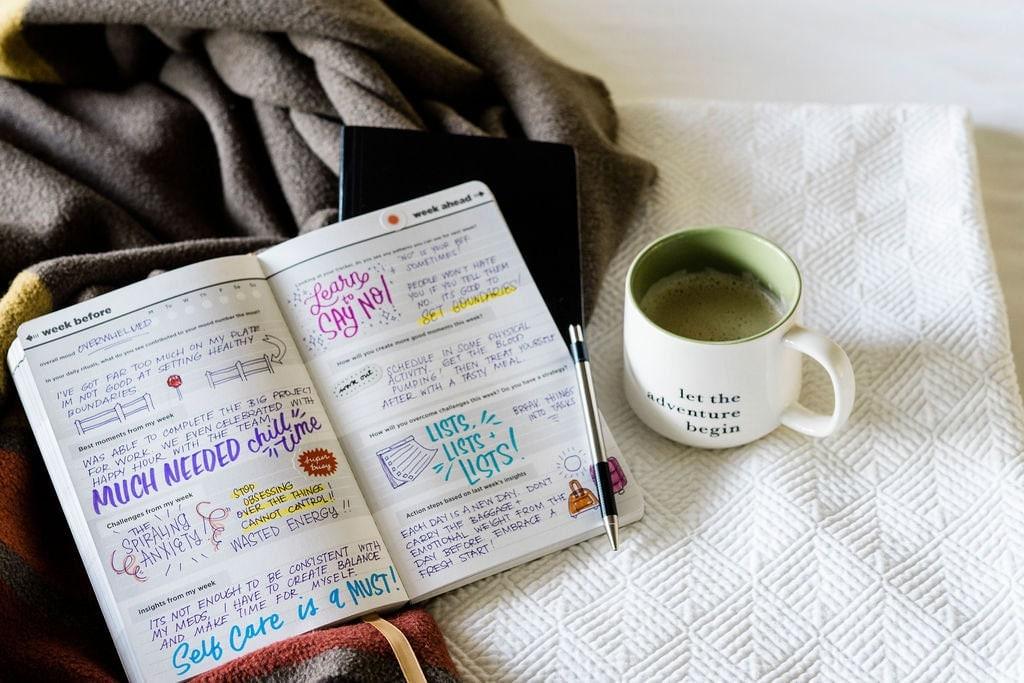 week before
Tu W Th F Sa Su
Overall mood OVERWHELMED
In your daily rituals, what do you see contributed to your mood number the most?
I'VE GOT FAR TOO MUCH ON MY PLATE
IM NOT GOOD AT SETTING HEALTHY
BOUNDARIES.
Best moments from my week
WAS ABLE TO COMPLETE THE BIG PROJECT
FOR WORK. WE EVEN CELEBRATED WITH
HAPPY HOUR WITH THE TEAM!
MUCH NEEDED chill time
Challenges from my week
THE
SPIRALING
ANXIETY!
STOP
OBSESSING
OVER THE THINGS I
CANNOT CONTROL!!
WASTED ENERGY!!
Insights from my week
ITS NOT ENOUGH TO BE CONSISTENT WITH
MY MEDS. I HAVE TO CREATE BALANCE
AND MAKE TIME FOR MYSELF
Self Care is a MUST!
week ahead
Looking at your tracker, do you see any patterns you can use for next week?
Learn
to
SAY NO!
"NO" IS YOUR BFF
SOMETIMES!
PEOPLE WON'T HATE
YOU IF YOU TELL THEM
NO. ITS GOOD TO
SET BOUNDARIES!
How will you create more good moments this week?
work out
SCHEDULE IN SOME PHYSICAL
ACTIVITY, GET THE BLOOD
PUMPING, THEN TREAT YOURSELF
AFTER WITH A TASTY MEAL.
How will you overcome challenges this week? Do you have a strategy?
LISTS,
LISTS +
LISTS!
BREAK THINGS
INTO TASKS
Action steps based on last week's insights
EACH DAY IS A NEW DAY. DONT
CARRY THE BAGGAGE +
EMOTIONAL WEIGHT FROM THE
DAY BEFORE. EMBRACE A
FRESH START!
let the
adventure
begin